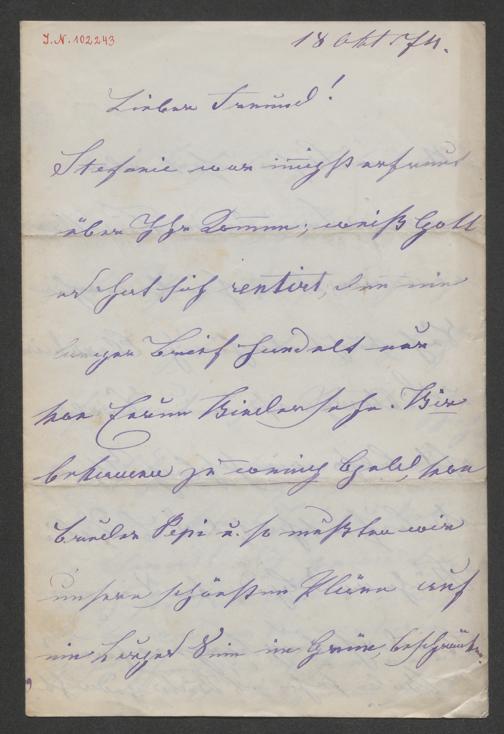 I.N. 102243
18 Okt 174.
Lieber Freund!
Stefanie war innigst erfreut
über Ihr Kommen; weiß Gott
es hat sich rentirt, den ein
langer Brief handelt nur
von Ihrem Hiersein. Wir
bekamen zu wenig Geld, von
Bruder Pepi u. so mußten wir
unsere schönsten Pläne auf
ein im beschränken.